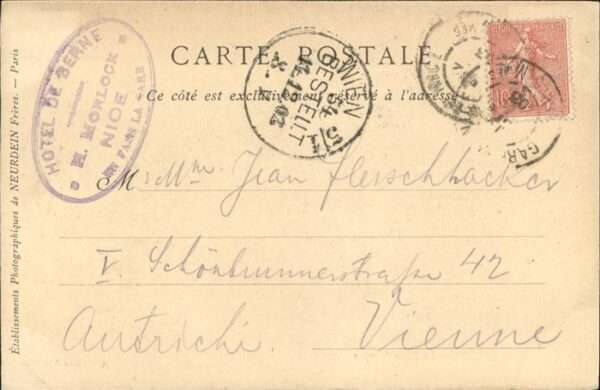 CARTE POSTALE
Ce côté est exclusivement réservé à l'adresse
HOTEL DE BERNE
H. MORLOCK
NICE
EN FACE LA GARE
WIEN
BESTELLT
M. Mme Jean Fleischhacker
V. Schönbrunnerstraße 42
Autriche. Vienne
Établissements Photographiques de NEURDEIN Frères. — Paris